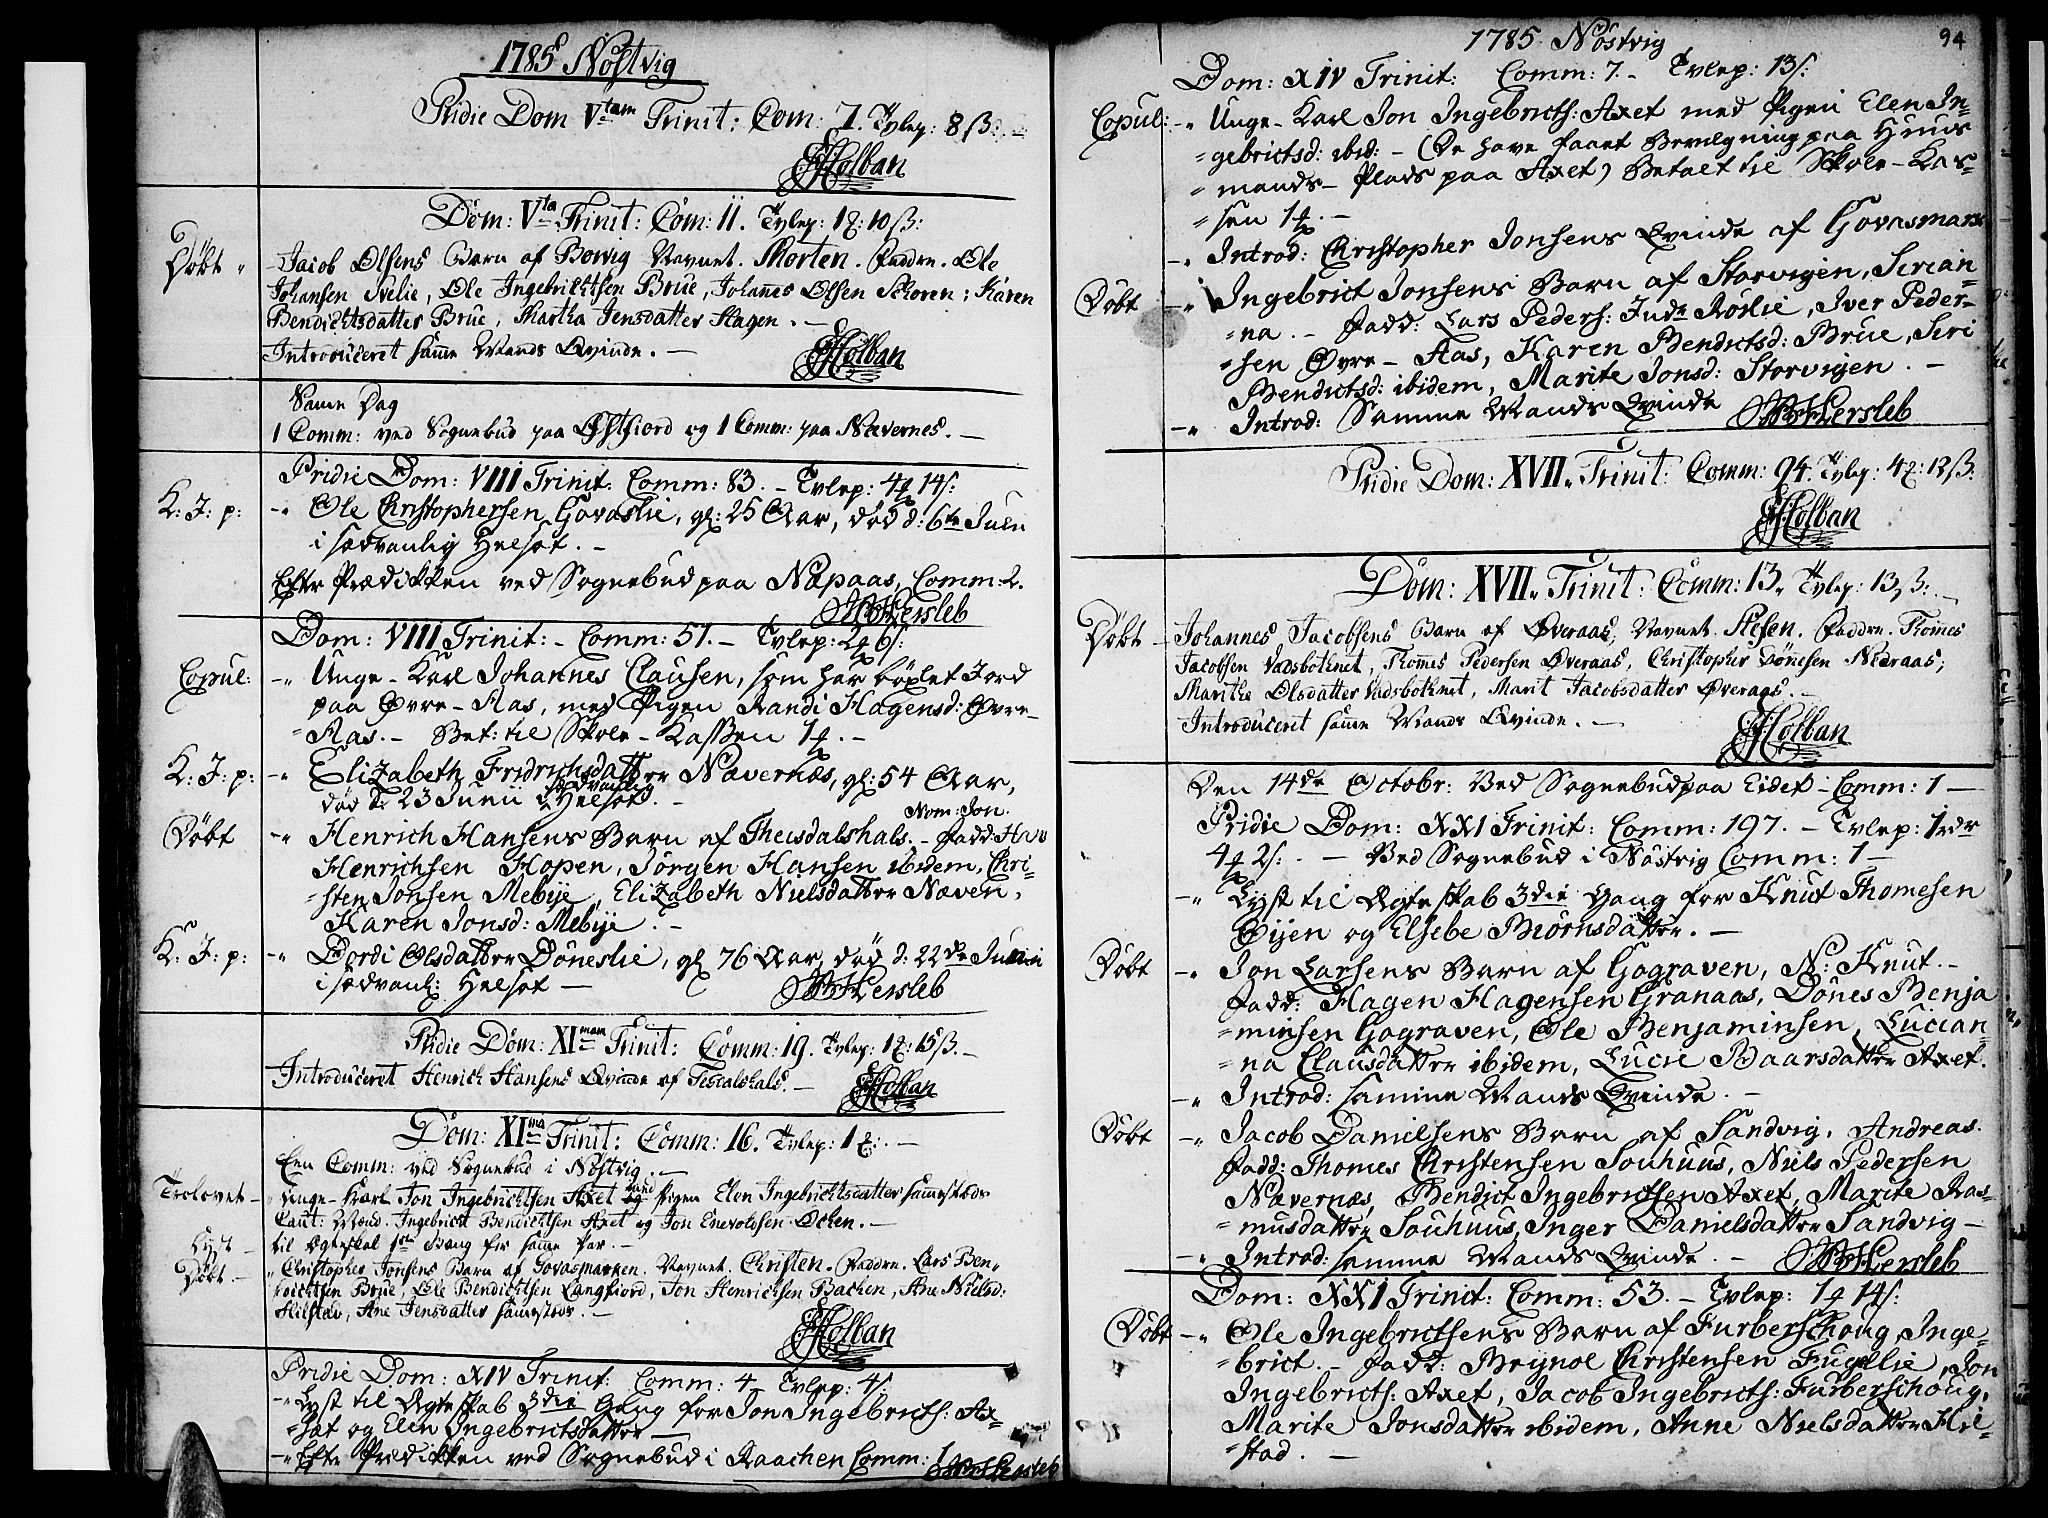 1785 Nöstvig
Pridie Dom Vtam Trinit: Com: 7. Tvlep: 8 ß:
Holban
Dom: Vta Trinit: Com: 11. Tvlep: 10 ß:
Döbt
Jacob Olsens Barn af Bowig Navnet. Morten. Faddre. Ole
Johansen Ivelie, Ole Ingebrichtsen Brue, Johanes Olsen Schoren; Karen
Bendichtsdatter Brue, Martha Jensdatter Hagen. -
Introduceret same Mands Qvinde. -
Holban
Same Dag
1 Comm: ved Sognebud paa Østfiord og 1 Comm: paa Nævernes. -
Pridie Dom: VIII Trinit: Comm: 83. - Tvlep: 14 s:
K: J: p: -" Ole Christophersen Govaslie, gl: 25 Aar, död d: 6te Julii
i sædvanlig Helsot. -
Efter Prædikken ved Sognebud paa Næpaas, Comm: 2.
Hersleb
Dom: VIII Trinit: - Comm: 51. - Tvlep: 6 s:
Copul: -" Unge-Karl Johannes Clausen, som har böxlet Jord
paa Øvre-Aas, med Pigen Randi Hagensd: Øvre-
=Aas. - Bet: til Skole-Kassen
K: J: p: -" Elizabeth Fridrichsdatter Nævernæs, gl: 54 Aar,
död d: 23 Junii i sædvanlig Helsot. -
Nom: Jon.
Döbt -" Henrich Hansens Barn af Theisdalshals. - Fadd: Hans
Henrichsen Hopen, Jörgen Hansen ibidem, Chri-
=sten Jonsen Mebye, Elizabeth Nielsdatter Næven,
Karen Jonsd: Mebye. -
K: J: p: -" Dordi Olsdatter Döneslie, gl 76 Aar, död d: 22de Junii
i sædvanl: Helsot -
Hersleb
Pridie Dom: XImam Trinit: Comm: 19. Tvlep: 15 ß. -
Introduceret Henrich Hansens Qvinde af Tisdalshals. -
Holban
Dom: XIma Trinit: Comm: 16. Tvlep: 1
Een Comm: ved Sognebud i Nöstvig. -
Trolovet - Unge-Karl Jon Ingebrichtsen Axet med Pigen Elen Ingebrichtsdatter samestæds
Caut: Mænd. Ingebricht Bendichtsen Axet og Jon Enevoldsen Ocken. -
Lyst - til Ægteskab 1ste Gang for same Par. -
Döbt. - Christopher Jonsens Barn af Govasmarken. Navnet. Christen. Faddre. Lars Ben-
=dichtsen Brue, Ole Bendichtsen Langfiord, Jon Henrichsen Bachen, Ane Nielsd:
Hilstad, Ane Jensdatter samesteds. -
Holban
Pridie Dom: XIV Trinit: Comm: 4 Tvlep: 4 s:
-" Lyst til Ægteskab 3die Gang for Jon Ingebrichts: Ax-
=sæt og Elen Ingebrictsdatter -
-" Efter Prædikken ved Sognebud i Raachen Comm: 1
Hersleb
1785 Nöstvig
94
Dom: XIV Trinit: Comm: 7. - Tvlep: 13 s:
Copul: -" Unge-Karl Jon Ingebricths: Axet med Pigen Elen In-
=gebrictsd: ibid: - (De have faaet Bevilgning paa Huus-
=mands-Plads paa Axet) Betalt til Skole-Kas-
=sen
-" Introd: Christopher Jonsens Qvinde af Govasmark
Döbt -" Ingebrict Jonsens Barn af Storvigen, Sirian-
=na. - Fadd: Lars Peders: Indr Röslie, Iver Peder-
=sen Øvre-Aas, Karen Bendictsd: Brue, Siri
Bendictsd: ibidem, Marite Jonsd: Storvigen. -
-" Introd: Samme Mands Qvinde
Hersleb
Pridie Dom: XVII. Trinit: Comm: 94. Tvlep: 4 : 12 ß:
Holban
Dom: XVII. Trinit: Comm: 13. Tvlep: 13 ß:
Döbt - Johannes Jacobsens Barn af Øveraas, Navnet. Faddre. Thomes
Jacobsen Vadsbothnet, Thomes Pedersen Øveraas, Christopher Dönesen Nedraas,
Marithe Olsdatter Vadsbothnet, Marit Jacobsdatter Øveraas. -
Introduceret same Mands Qvinde. -
Holban
Den 14de Octobr: Ved Sognebud paa Eidet - Comm: 1 -
Pridie Dom: XXI Trinit: Comm: 197. - Tvlep: 1 rdr
2 s: . - Ved Sognebud i Nöstvig Comm: 1 -
-" Lyst til Ægteskab 3die Gang for Knut Thomesen
Eijen og Elsebe Biörnsdatter. -
Döbt -" Jon Larsens Barn af Gograven, N: Knut. -
Fadd: Hagen Hagensen Granaas, Dönes Benja
=minsen Gograven, Ole Benjaminsen, Lucian-
=na Clausdatter ibidem, Lucie Baarsdatter Axet.
-" Introd: samme Mands Qvinde. -
Döbt -" Jacob Danielsens Barn af Sandvig, Andreas.
Fadd: Thomes Christensen Souhuus, Niels Pedersen
Nævernæs, Bendict Ingebrictsen Axet, Marite Ras-
=musdatter Souhuus, Inger Danielsdatter Sandvig -
-" Introd: samme Mands Qvinde. -
Hersleb
Dom: XXI Trinit: Comm: 53. - Tvlep: 14 s:
Döbt -" Ole Ingebrictsens Barn af Furberschoug, Inge-
=brict. - Fadd: Brynol Christensen Fuglelie, Jon
Ingebricts: Axet, Jacob Ingebricts: Furberschoug,
Marite Jonsdatter ibidem, Anne Nielsdatter Hil-
=stad. -